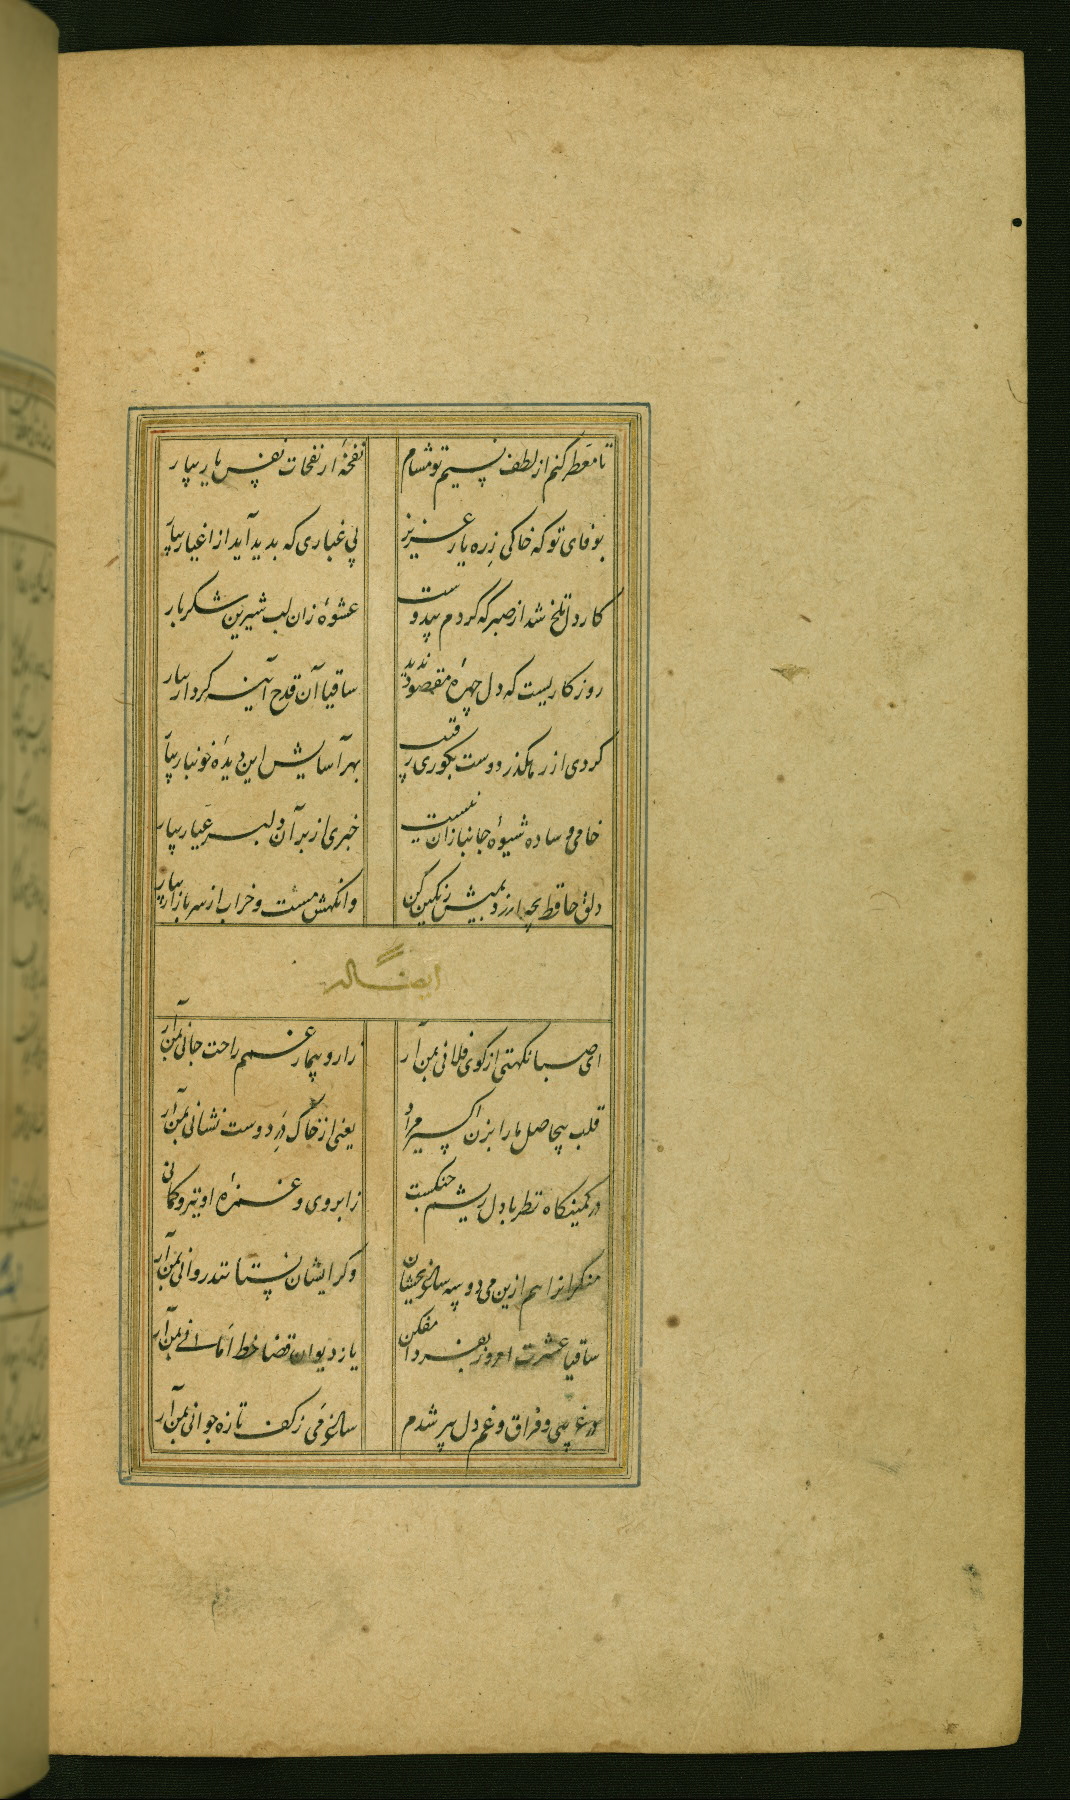 تا معطر کنم از لطف نسیم تو مشام نفحهٔ از نفحات نفس یار بیار
بوفای تو که خاکی زره یار عزیز بی غباری که بدید آید از اغیار بیار
کار دل تلخ شد از صبر که کردم بیدوست عشوهٔ زان لب شیرین شکربار
روزکاریست که دل چهرهٔ مقصود ندید ساقیا آن قدح آینه کردار بیار
کردی از رهکذر دوست بکوری رقیب بهر آسایش این دیدهٔ خونبار بیار
خامی و ساده شیوهٔ جانبازان نیست خبری از بر آن دلبر عیار بیار
دلق حافظ بچه ارزد بمیش رنکین کن وانکهش مست و خراب از سر بازار بیار
ایضا له
ای صبا نکهتی از کوی فلانی بمن آر زار و بیمار غمم راحت جانی بمن آر
قلب بیحاصل ما را بزن اکسیر مراد یعنی از خاک در دوست نشانی بمن آر
در کمینکاه نظر با دل ریشم جنکست زابروی و غمزهٔ او تیر و کمانی
منکرانرا هم ازین می دو سه ساغر بچشان وکر ایشان نستانند روانی بمن آر
ساقیا عشرت امروز بفردا مفکن یا ز دیوان قضا خط امانی بمن آر
در غریبی و فراق و غم دل پیر شدم ساغر می ز کف تازه جوانی بمن آر